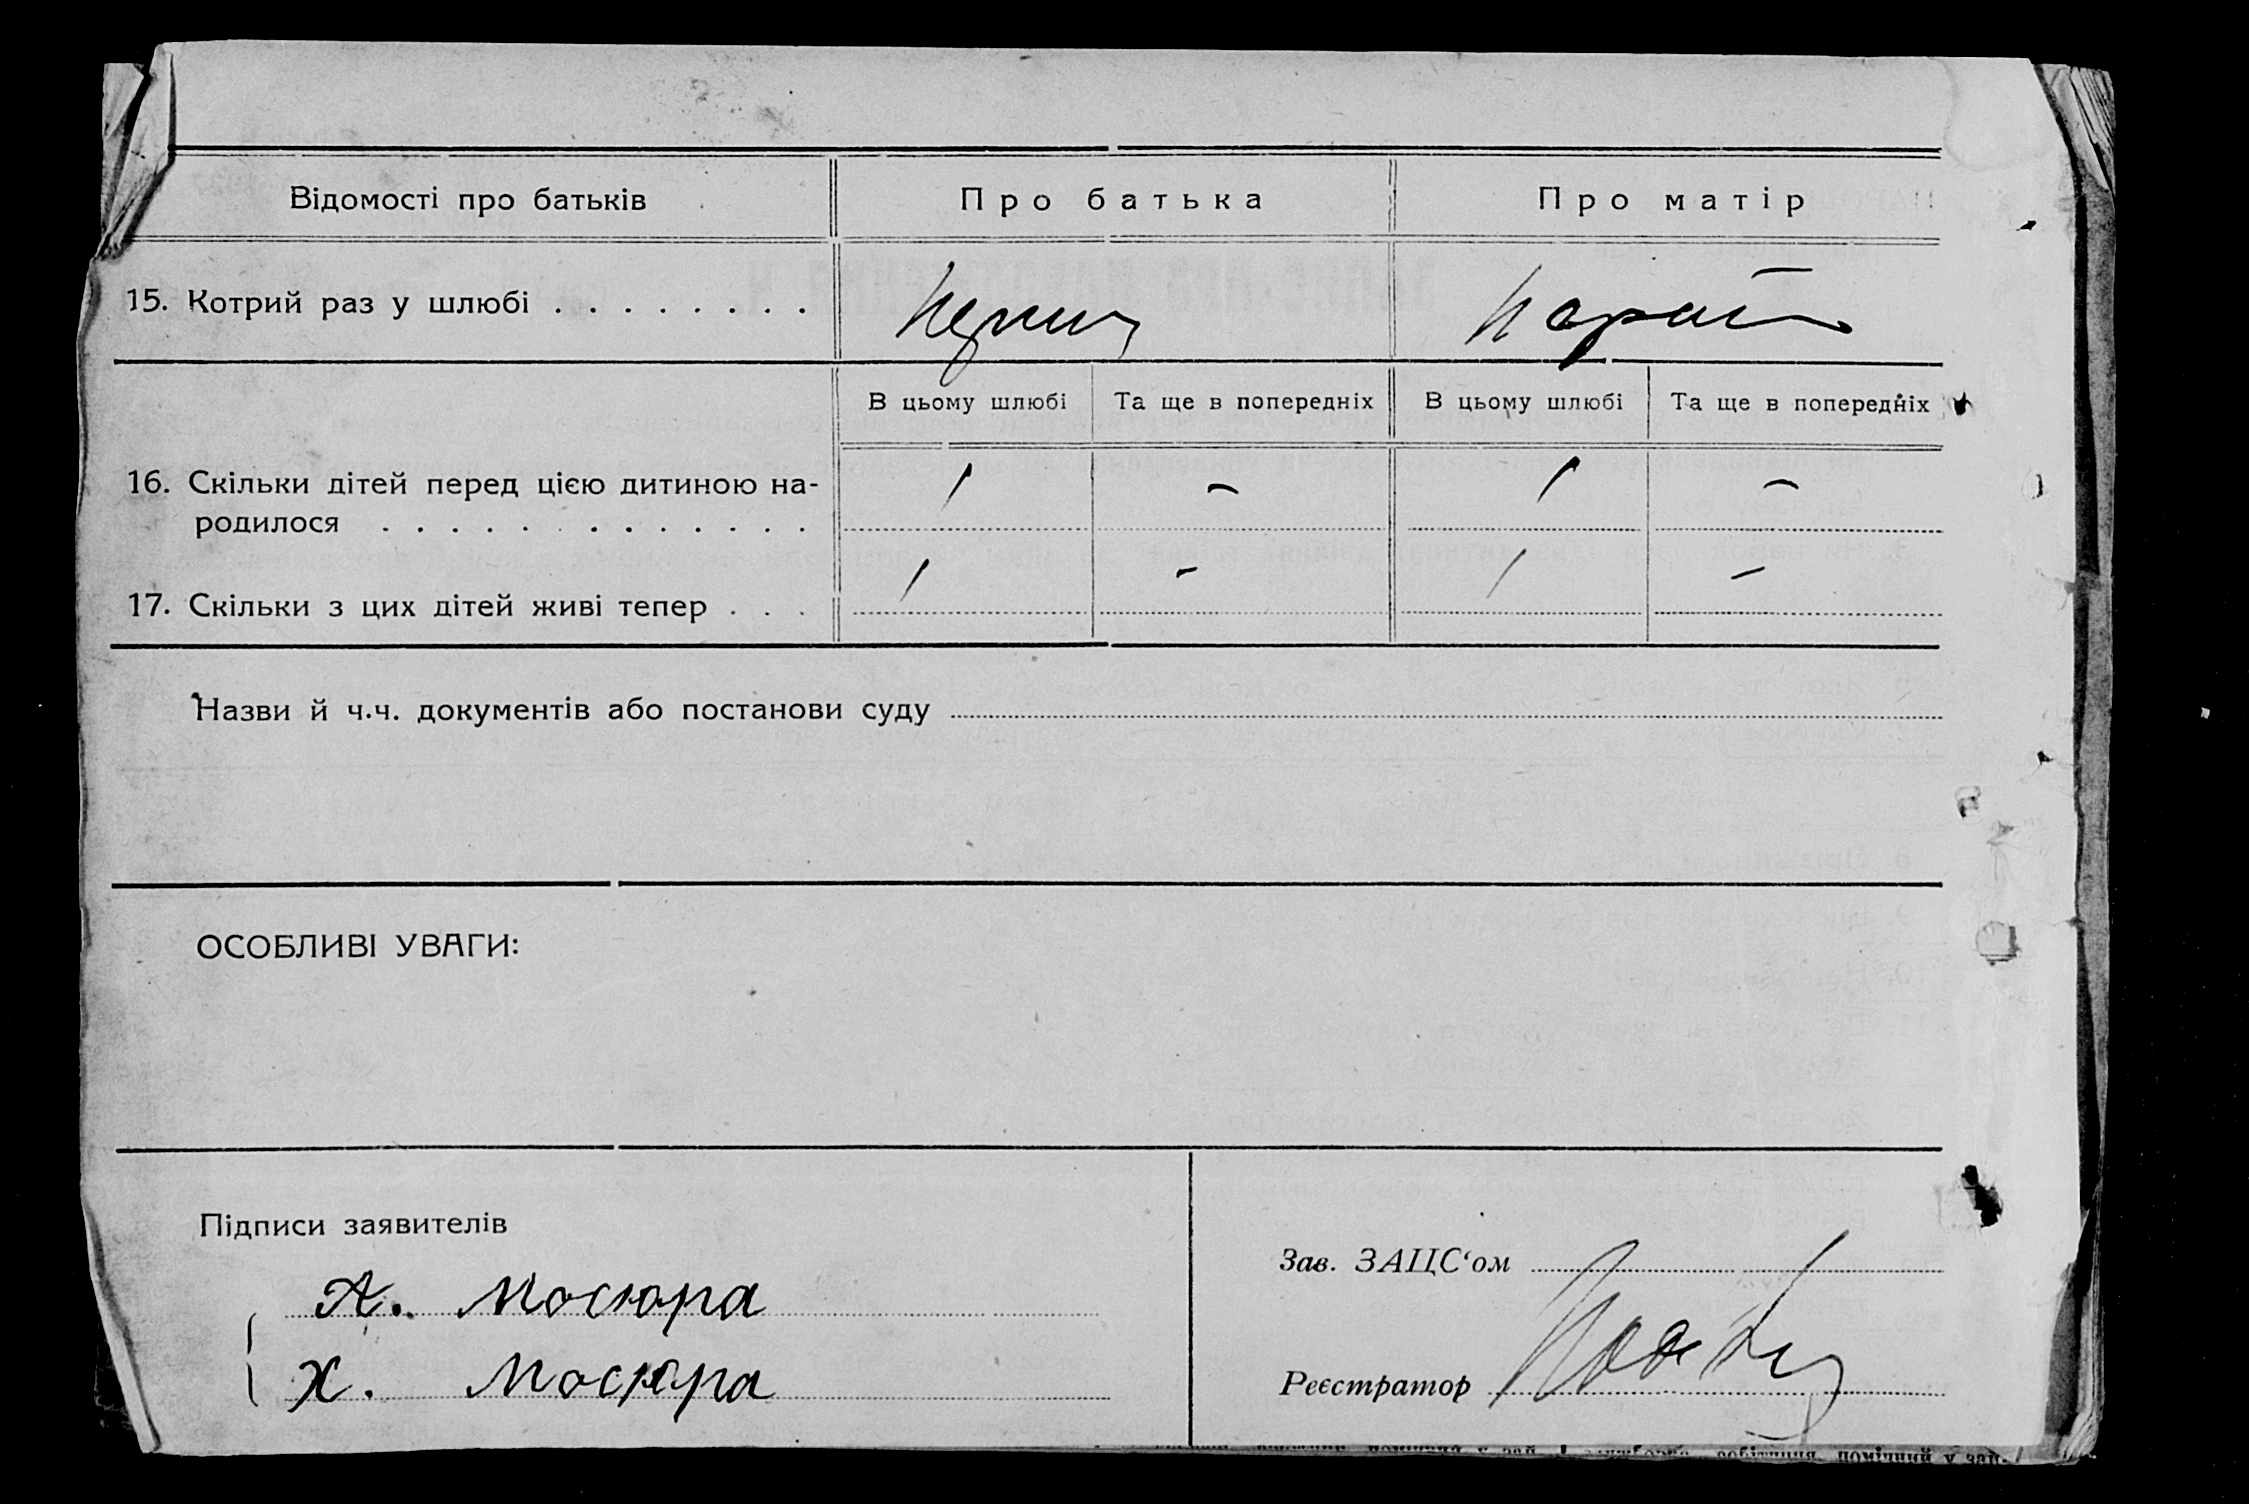 Відомості про батьків Про батька Про матір
15. Котрий раз у шлюбі . . . . . . . .
В цьому шлюбі Та ще в попередніх В цьому шлюбі Та ще в попередніх
16. Скільки дітей перед цією дитиною на- 1 – 1 –
родилося . . . . . . . . . . . . .
17. Скільки з цих дітей живі тепер . . . 1 – 1 –
Назви й ч.ч. документів або постанови суду
ОСОБЛИВІ УВАГИ:
Підписи заявителів
А. Мосюра
Х. Мосюра
Зав. ЗАЦС‘ом
Реєстратор